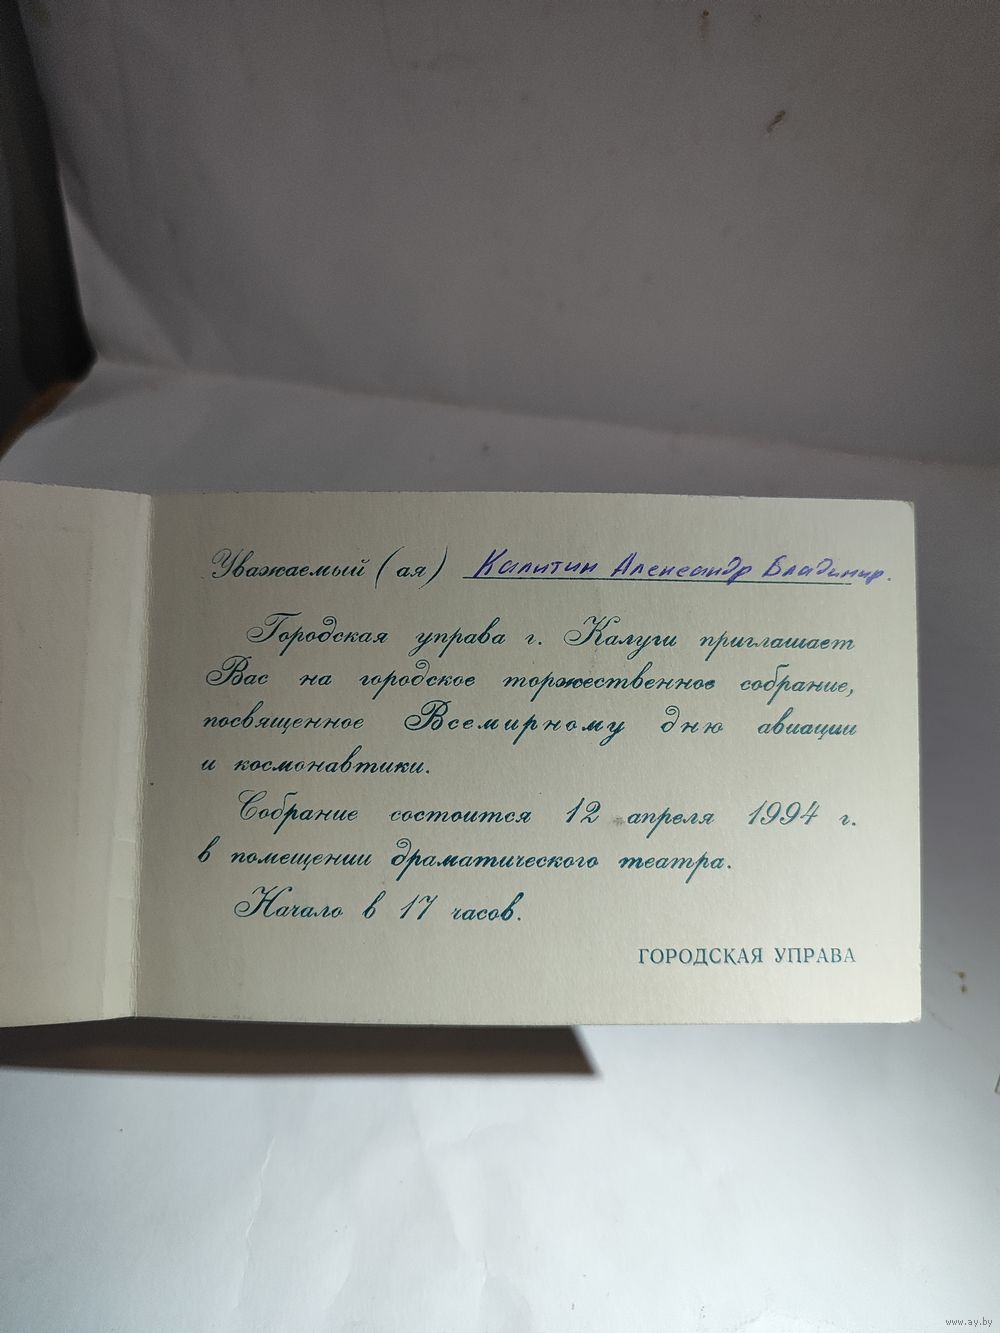 Уважаемый (ая) Калитин Александр Владимир.
Городская управа г. Калуги приглашает
Вас на городское торжественное собрание,
посвященное Всемирному дню авиации
и космонавтики.
Собрание состоится 12 апреля 1994 г.
в помещении драматического театра.
Начало в 17 часов.
ГОРОДСКАЯ УПРАВА
www.ay.by